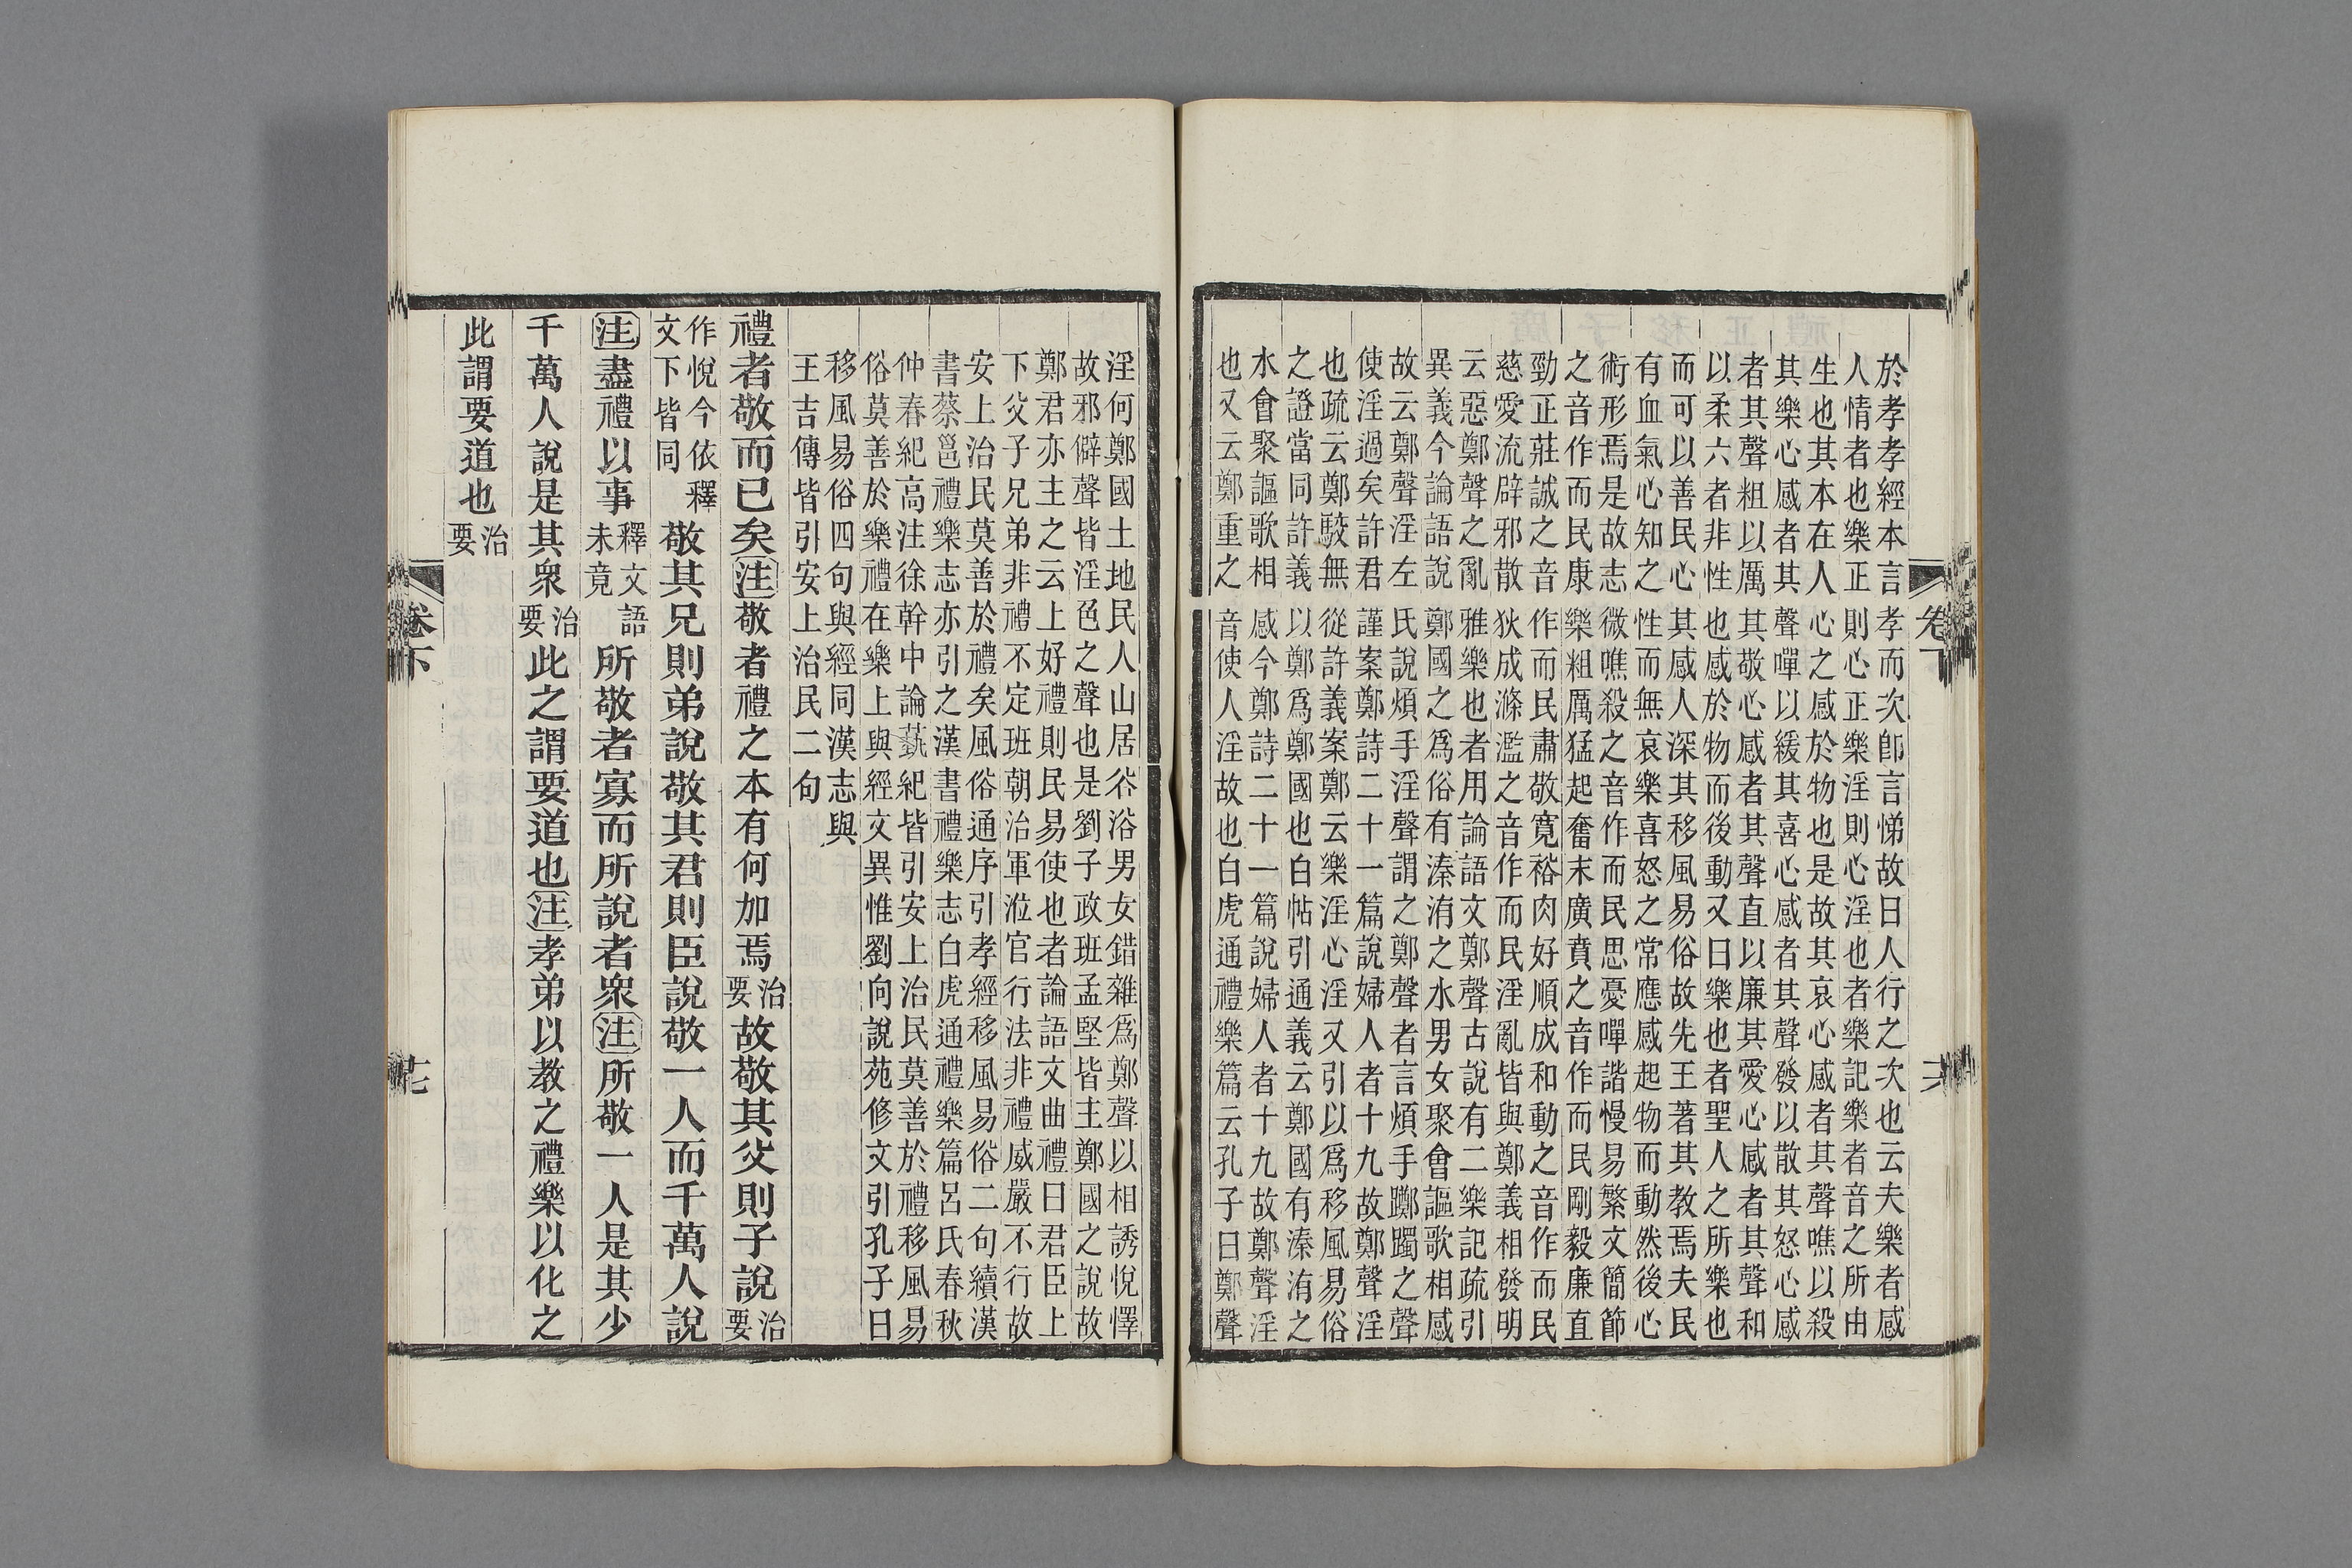 於孝孝經本言孝而次卽言悌故曰人行之次也云夫樂者感
人情者也樂正則心正樂淫則心淫也者樂記樂者音之所由
生也其本在人心之感於物也是故其哀心感者其聲噍以殺
其樂心感者其聲嘽以緩其喜心感者其聲發以散其怒心感
者其聲粗以厲其敬心感者其聲直以廉其愛心感者其聲和
以柔六者非性也感於物而後動又曰樂也者聖人之所樂也
而可以善民心其感人深其移風易俗故先王著其教焉夫民
有血氣心知之性而無哀樂喜怒之常應感起物而動然後心
術形焉是故志微噍殺之音作而民思憂嘽諧慢易繁文簡節
之音作而民康樂粗厲猛起奮末廣賁之音作而民剛毅廉直
勁正莊誠之音作而民肅敬寬裕肉好順成和動之音作而民
慈愛流辟邪散狄成滌濫之音作而民淫亂皆與鄭義相發明
云惡鄭聲之亂雅樂也者用論語文鄭聲古說有二樂記疏引
異義今論語說鄭國之爲俗有溱洧之水男女聚會謳歌相感
故云鄭聲淫左氏說煩手淫聲謂之鄭聲者言煩手躑躅之聲
使淫過矣許君謹案鄭詩二十一篇說婦人者十九故鄭聲淫
也疏云鄭駮無從許義案鄭云樂淫心淫又引以爲移風易俗
之證當同許義以鄭爲鄭國也白帖引通義云鄭國有溱洧之
水會聚謳歌相感今鄭詩二十一篇說婦人者十九故鄭聲淫
也又云鄭重之音使人淫故也白虎通禮樂篇云孔子曰鄭聲
卷下
六
淫何鄭國土地民人山居谷浴男女錯雜爲鄭聲以相誘悅懌
故邪僻聲皆淫色之聲也是劉子政班孟堅皆主鄭國之說故
鄭君亦主之云上好禮則民易使也者論語文曲禮曰君臣上
下父子兄弟非禮不定班朝治軍涖官行法非禮威嚴不行故
安上治民莫善於禮矣風俗通序引孝經移風易俗二句續漢
書蔡邕禮樂志亦引之漢書禮樂志白虎通禮樂篇呂氏春秋
仲春紀高注徐幹中論蓺紀皆引安上治民莫善於禮移風易
俗莫善於樂禮在樂上與經文異惟劉向說苑修文引孔子曰
移風易俗四句與經同漢志與
王吉傳皆引安上治民二句
禮者敬而已矣注敬者禮之本有何加焉治要故敬其父則子說治要
作悅今依釋文下皆同敬其兄則弟說敬其君則臣說敬一人而千萬人說
注盡禮以事釋文語未竟所敬者寡而所說者衆注所敬一人是其少
千萬人說是其衆治要此之謂要道也注孝弟以教之禮樂以化之
此謂要道也治要
卷下